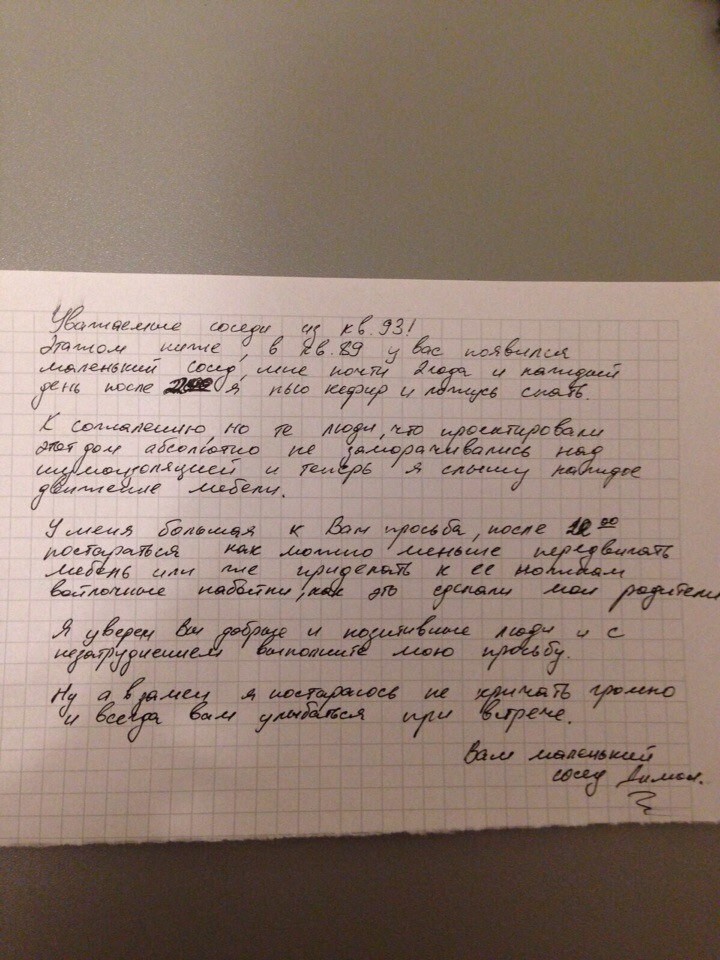 Уважаемые соседи из кв. 93!
Этажом ниже, в кв. 89 у вас появился
маленький сосед, мне почти 2 года и каждый
день после я пью кефир и ложусь спать.
К сожалению, но те люди, что проектировали
этот дом абсолютно не заморачивались над
шумоизоляцией и теперь я слышу каждое
движение мебели.
У меня большая к Вам просьба, после 00
постараться как можно меньше передвигать
мебель или же приделать к ее ножкам
войлочные набойки, как это сделали мои родители
Я уверен Вы добрые и позитивные люди и с
незатруднением выполните мою просьбу.
Ну а взамен я постараюсь не кричать громко
и всегда вам улыбаться при встрече.
Ваш маленький
сосед Димон.